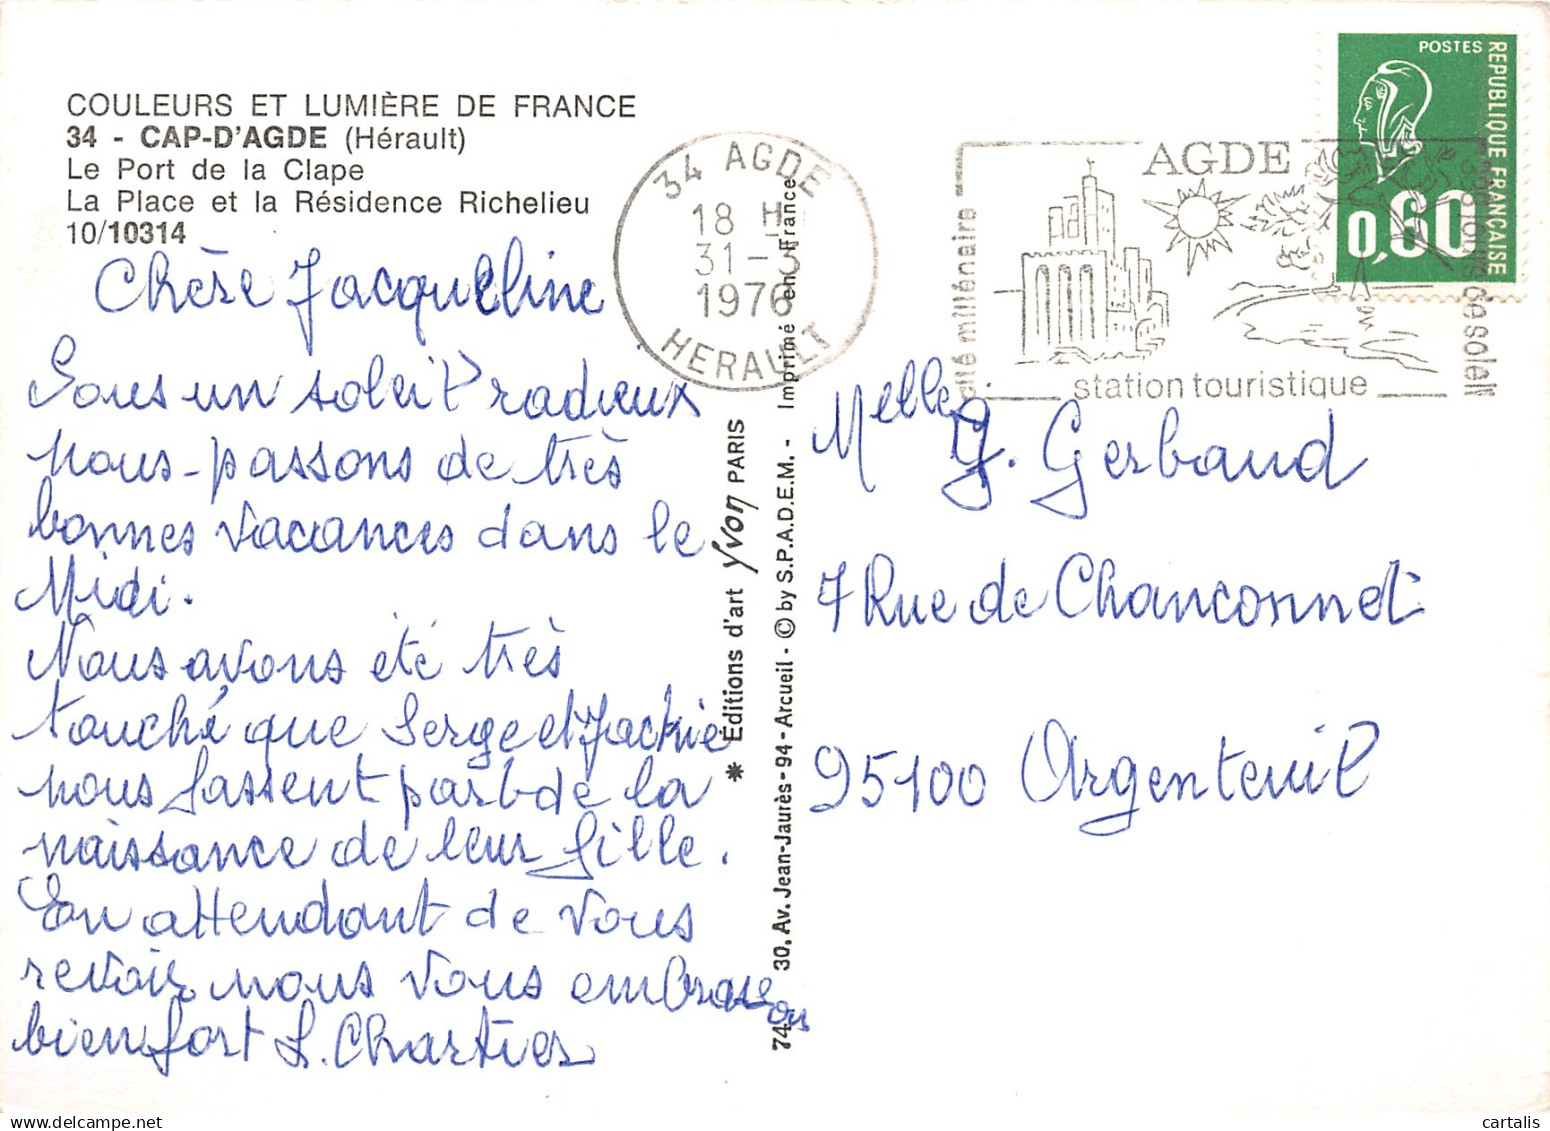 COULEURS ET LUMIÈRE DE FRANCE
34 - CAP-D'AGDE (Hérault)
Le Port de la Clape
La Place et la Résidence Richelieu
10/10314
Chère Jacqueline
Sous un soleil radieux
nous passons de très
bonnes vacances dans le
Midi.
Nous avons été très
touché que Serge et Jackie
nous fassent part de la
naissance de leur fille.
En attendant de vous
revoir nous vous embrassons
bien fort S. Chartier
34 AGDE
18 H
31-5
1976
HERAULT
* Éditions d'art Yvon PARIS
74 30, Av. Jean-Jaurès - 94 - Arcueil - © by S.P.A.D.E.M. - Imprimé en France
cité millénaire
AGDE
station touristique
jours de soleil
POSTES
REPUBLIQUE FRANÇAISE
0,60
Melle J. Gerbaud
7 Rue de Chanconnet
95100 Argenteuil
cartalis